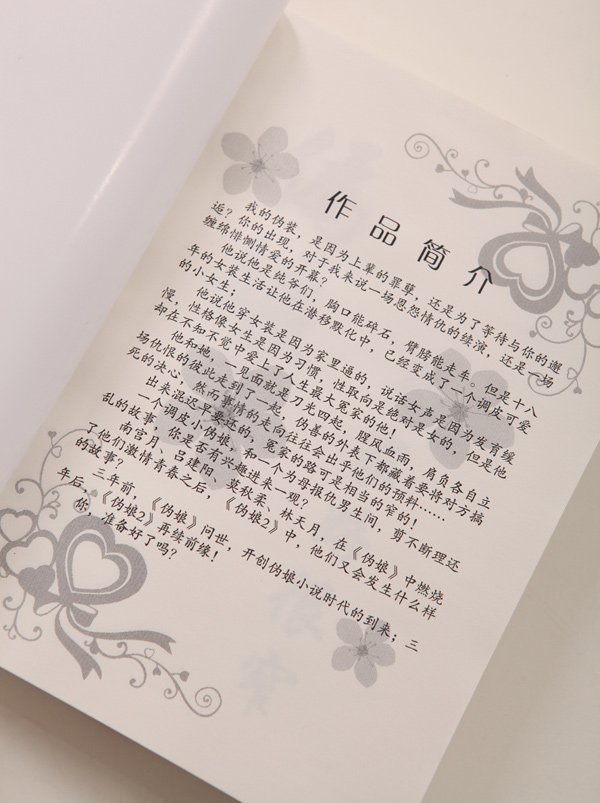 作品简介
我的伪装，是因为上辈的罪孽，还是为了等待与你的邂
逅？你的出现，对于我来说一场恩怨情仇的续演，还是一场
缠绵悱恻情爱的开幕？
他说他是纯爷们，胸口能碎石，臂膀能走车。但是十八
年的女装生活让他在潜移默化中，已经变成了一个调皮可爱
的小女生。
他说他穿女装是因为家里逼的，说话女声是因为发育缓
慢，性格像女生是因为习惯，性取向是绝对是女的，但是他
却在不知不觉中爱上了人生最大冤家的他！
他和她，一见面就是刀光四起，腥风血雨，肩负各自立
场仇恨的彼此走到了一起，伪善的外表下都藏着要将对方搞
死的决心，然而事情的走向往往会出乎他们的预料……
出来混迟早要还的，冤家的路可是相当的窄的！
一个调皮小伪娘，和一个为母报仇男生间，剪不断理还
乱的故事，你是否有兴趣进来一观？
南宫月、吕建阳、莫秋柔、林天月，在《伪娘》中燃烧
了他们激情青春之后，《伪娘2》中，他们又会发生什么样
的故事？
三年前，《伪娘》问世，开创伪娘小说时代的到来；三
年后，《伪娘2》再续前缘！
你，准备好了吗？